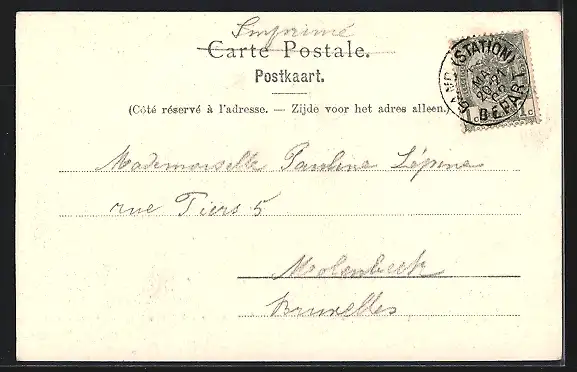 Imprimé
Carte Postale.
Postkaart.
(Côté réservé à l'adresse. — Zijde voor het adres alleen.)
GAND (STATION)
DEPART
1c 1c
Mademoiselle Pauline Lépine
rue Tiers 5
Molenbeek
Bruxelles